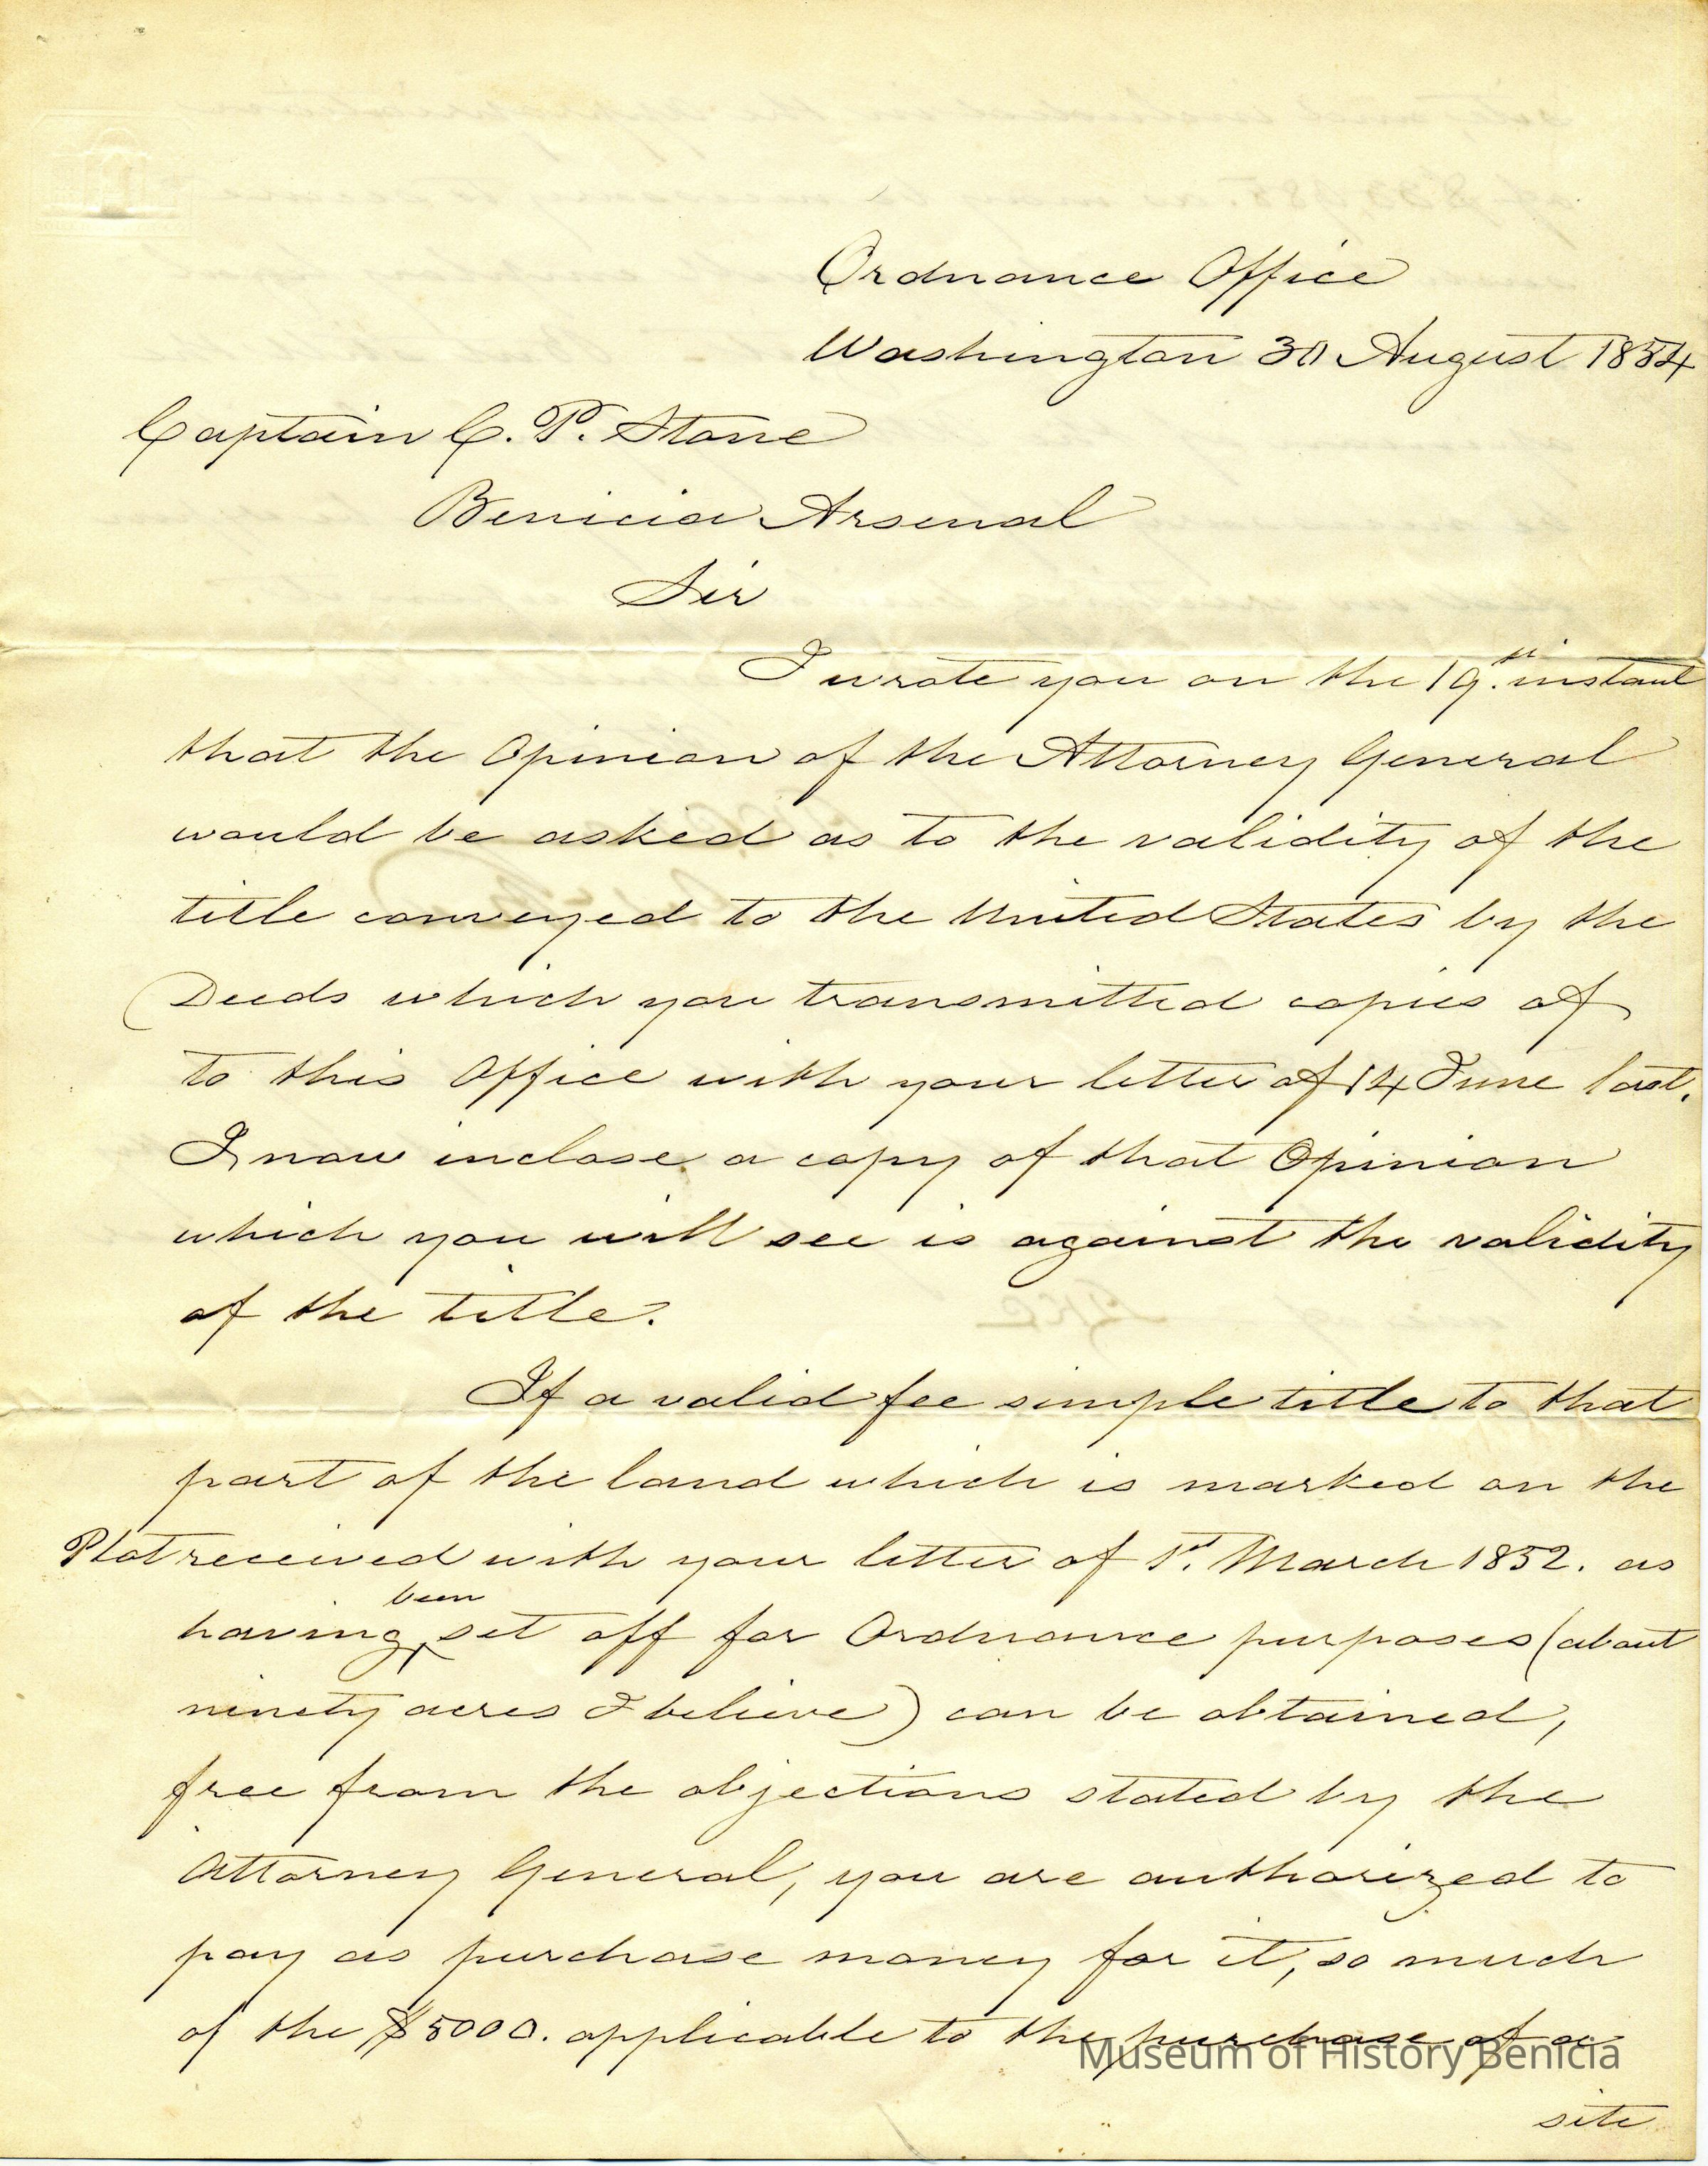 Ordnance Office
Washington 30 August 1854
Captain C. P. Stone
Benicia Arsenal
Sir
I wrote you on the 19th. instant
that the Opinion of the Attorney General
would be asked as to the validity of the
title conveyed to the United States by the
Deeds which you transmitted copies of
to this Office with your letter of 14 June last.
I now inclose a copy of that Opinion
which you will see is against the validity
of the title.
If a valid fee simple title to that
part of the land which is marked on the
Plat received with your letter of 1st. March 1852. as
having been set off for Ordnance purposes (about
ninety acres I believe) can be obtained,
free from the objections stated by the
Attorney General, you are authorized to
pay as purchase money for it, so much
of the $5000. applicable to the purchase of a
Museum of History Benicia
site